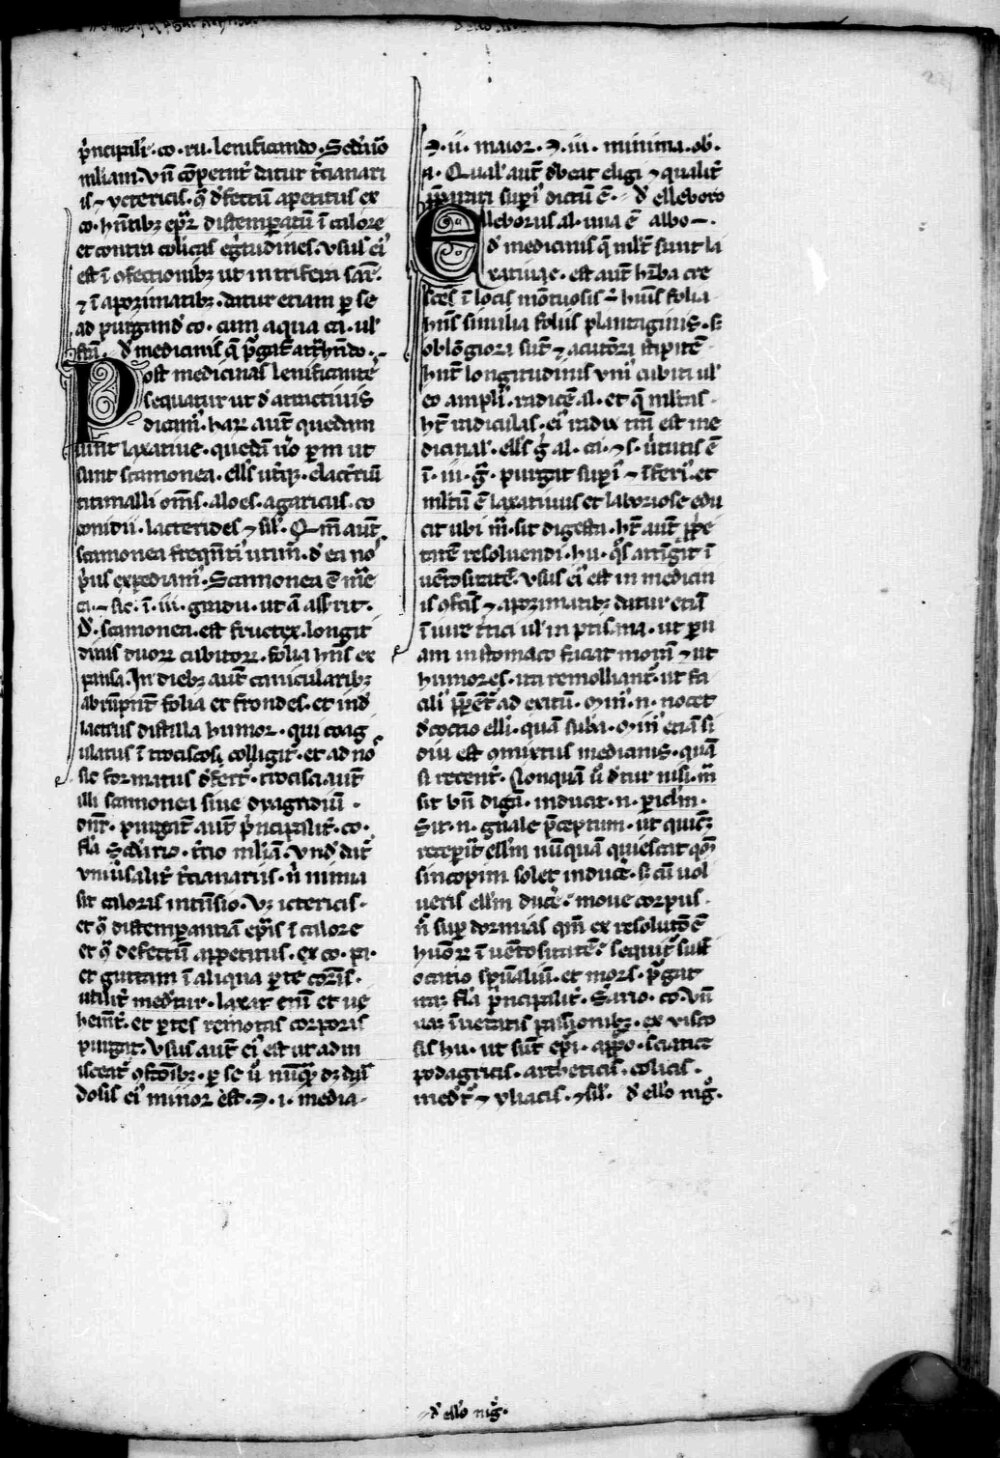 p̄ncipalit̄ · co · ru · lenificando · Sed'īuo
niliam · Vn̄ cōpetent̄ datur t̄cianari
is ⁊ yctericis · ꝯ̄ d'fectū aperitus ex
co · hn̄tibꝫ epr̄ distemperatū ī calore
et contra colicas egritudines · vsus ei'
est ī ꝯfectionibꝫ ut in trifera sar̄ ·
⁊ ī apozimatibꝫ · datur etiam ꝑ se
ad purgand' co · cum aqua ca · ul'
d' medicinis q̄ p̄gāt attrħndo ·
Post medicinas lenificātiē
sequatur ut d' atractiuis
dicam' · harꝝ aut̄ quedam
sunt laxatiue · quedā u'o ꝑ m ut
sunt scamonea · ell's ut̄qꝫ · elact̄iū
titimalli om̄s · aloes · agaricus · co
conidii · lacterides ⁊ sil' · Qm̄ aut̄
scamonea frequēt' utim̄ · d' ea no
b̄us expediam' · Scamonea ē n̄re
ca · ⁊ sic · ī · iii · gradu · ut ā ass̄rit ·
D' · scamonea · est frutex · longit
dinis duoꝝ cubitoꝝ · folia hn̄s ex
pansa · In diebꝫ aut̄ canicularibꝫ
abrūpūt folia et frondes · et ind'
lacteus distilla humor · qui coag
ulatus ī trociscos colligit̄ · et ad no
sic formatus d'fert̄ · trocisci aut̄
illi scamonea siue dyagridiū ·
dn̄r · purgat̄ aut̄ p̄ncipalit̄ · co ·
fl'a Sed'ario · t̄cio nliā · Vnd' dat̄
vniu'salit̄ t̄cianariis · n̄ nimia
sit caloris intēsio · Vꝫ ictericis ·
et ꝯ̄ distemperantiā epatis ī calore
et ꝯ̄ defectū appetitus · ex co ·
et guttam ī aliqua ꝑte cor̄is ·
utilit̄ med'tur · laxat enī et ue
hem̄t̄ · et ꝑtes remotas corporis
purgat · Vsus aut̄ ei' est ut adm
isceat̄ ꝯf'cōibꝫ · ꝑ se u' nūqꝫ dꝫ dari
dosis ei' minor est · ʒ · i · media ·
ʒ · ii · maior · ʒ · iii · minima · ob ·
a · Qual' aut̄ d'beat eligi ⁊ qualit̄
p̄parari sup̄i' dictū ē · d' elleboro
Elleborus al · una ē albo ·
d' medicinis q̄ ml't sunt la
xatiuae · est aut̄ h̄ba cre
sces ī locis mōtuosis · hn̄s folia
hn̄s similia foliis plantaginis · s;
oblōgiora sūt ⁊ acutiora stipitē
hn̄t longitudinis vni' cubiti ul'
eo ampli' · radicē al · et q̄ ml'tas
ht̄ radiculas · ei' radix tm̄ est me
dicinal' · ell's g̊ al · ca · ⁊ s · u'tutis ē
ī · iii · g̊ · purgat sup̄i' ⁊ īferi' · et
ml'tū ē laxatiuus et laboriose edu
cit ubi m̄ · sit digesta · ht̄ aut̄ p̄p̄e
tatē resoluendi · hu · q̊s attigit ī
uētositatē · vsus ei' est in medicin
is ꝯf'cīs ⁊ apozimatibꝫ datur etiā
ī iure t̄tici ul' in ptisana · ut ꝑu
am in stomaco faciat morā ⁊ ut
humores · ita remolliant̄ · ut fa
cili' p̄parēt̄ ad exitū · Min' · n · nocet
d'coctio elli · quā suba · ꝯ · in' etiā si
diu est ꝯmixtus medicinis · quā
si recent̄ · Nonquā u' d'tur nisi · m̄
sit bn̄ diḡa · inducit · n · ꝑicl'm ·
Sit · n · gn̄ale p̄ceptum · ut quicūqꝫ
receperit ell'm nūqua quiescat qm̄
sincopim solet inducē · s; cū uol
ueris ell'm ducē · moue corpus
n̄ sup̄ dormias qm̄ ex resolutōē
huōrꝫ ī uētositatē · sequit̄ suff
ocatio sp̄ualiū · et mors · p̄gat
aut̄ fl'a p̄ncipalit̄ · S'ario · co · Vn̄
ual' īueteratis passionibꝫ · ex visco
sis hu · ut sūt epi' · appo · sciatic
podagricis · artheticis · colicis ·
med't̄ ⁊ yliacis · ⁊ sil' · d' ell'o nig̊ ·
d' ell'o nig̊ ·